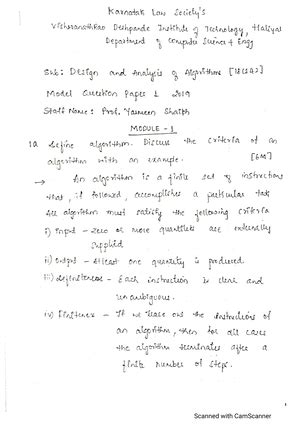 Karnatak Law Society's
Vishwanathrao Deshpande Institute of Technology, Haliyal
Department of Computer Science & Engg
Sub: Design and Analysis of Algorithms [18CS42]
Model Question Paper 1 2019
Staff Name: Prof. Yasmeen Shaikh
MODULE - 1
1a Define algorithm. Discuss the criteria of an
algorithm with an example. [6M]
→ An algorithm is a finite set of instructions
that, if followed, accomplishes a particular task
All algorithm must satisfy the following criteria
i) Input - Zero or more quantities are externally
supplied
ii) Output - Atleast one quantity is produced.
iii) Definiteness - Each instruction is clear and
unambiguous.
iv) Finiteness - If we trace out the instructions of
an algorithm, then for all cases
the algorithm terminates after a
finite number of steps.
Scanned with CamScanner